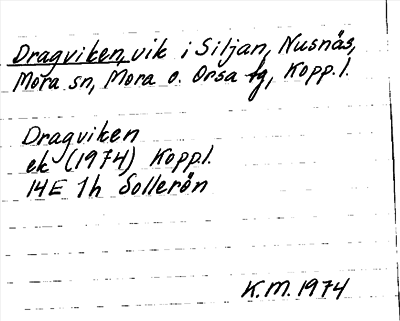 Dragviken, vik i Siljan, Nusnäs,
Mora sn, Mora o. Orsa tg, Kopp. l.
Dragviken
ek (1974) Kopp.l.
14E 1h Sollerön
K.M. 1974